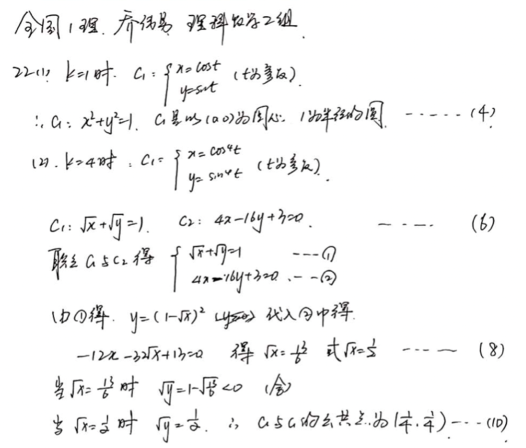 全国1理. 乔伟易 理科数学2组
22(1) k=1时. C₁: { x=cost y=sint (t为参数).
∴ C₁: x²+y²=1. C₁是以(0,0)为圆心. 1为半径的圆. ----- (4)
(2). k=4时. C₁= { x=cos⁴t y=sin⁴t (t为参数).
C₁: √x+√y=1. C₂: 4x-16y+3=0. ---- (6)
联立C₁与C₂得 { √x+√y=1 ---① 4x-16y+3=0 ---②
由①得. y=(1-√x)² 代入②中得.
-12x-32√x+13=0 得 √x=13/6 或√x=1/2 ---- (8)
当√x=13/6时 √y=1-√13/6<0 (舍)
当√x=1/2时 √y=1/2. ∴ C₁与C₂的公共点为(1/4, 1/4) --- (10)